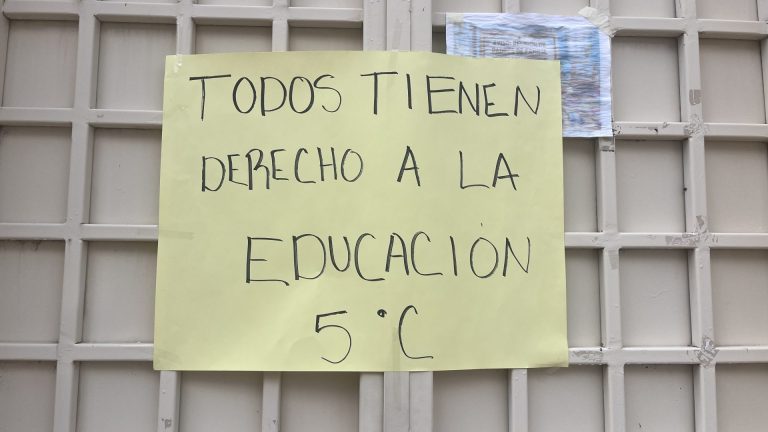 TODOS TIENEN
DERECHO A LA
EDUCACIÓN
5°C